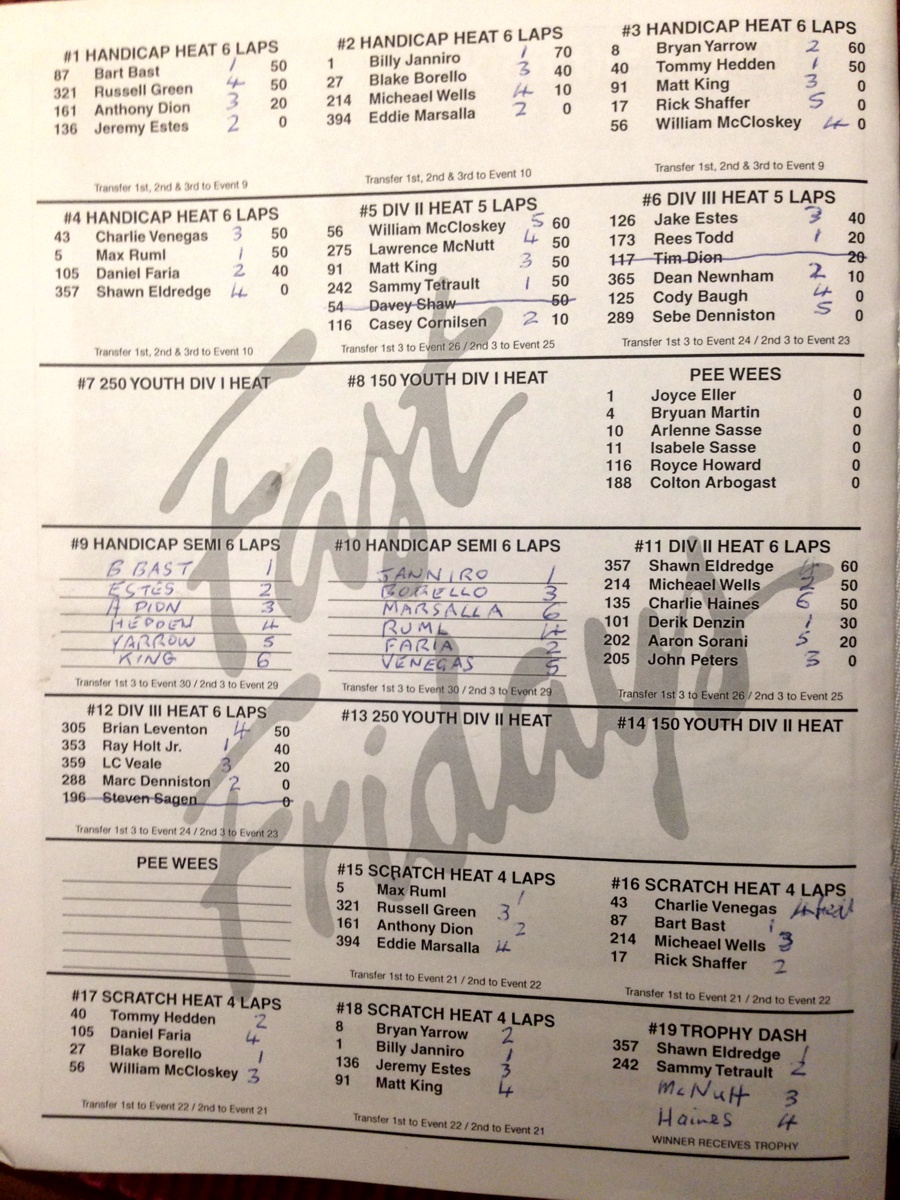 #1 HANDICAP HEAT 6 LAPS
87 Bart Bast 1 50
321 Russell Green 4 50
161 Anthony Dion 3 20
136 Jeremy Estes 2 0
Transfer 1st, 2nd & 3rd to Event 9
#2 HANDICAP HEAT 6 LAPS
1 Billy Janniro 1 70
27 Blake Borello 3 40
214 Micheael Wells 4 10
394 Eddie Marsalla 2 0
Transfer 1st, 2nd & 3rd to Event 10
#3 HANDICAP HEAT 6 LAPS
8 Bryan Yarrow 2 60
40 Tommy Hedden 1 50
91 Matt King 3 0
17 Rick Shaffer 5 0
56 William McCloskey 4 0
Transfer 1st, 2nd & 3rd to Event 9
#4 HANDICAP HEAT 6 LAPS
43 Charlie Venegas 3 50
5 Max Ruml 1 50
105 Daniel Faria 2 40
357 Shawn Eldredge 4 0
Transfer 1st, 2nd & 3rd to Event 10
#5 DIV II HEAT 5 LAPS
56 William McCloskey 5 60
275 Lawrence McNutt 4 50
91 Matt King 3 50
242 Sammy Tetrault 1 50
54 Davey Shaw 50
116 Casey Cornilsen 2 10
Transfer 1st 3 to Event 26 / 2nd 3 to Event 25
#6 DIV III HEAT 5 LAPS
126 Jake Estes 3 40
173 Rees Todd 1 20
117 Tim Dion 20
365 Dean Newnham 2 10
125 Cody Baugh 4 0
289 Sebe Denniston 5 0
Transfer 1st 3 to Event 24 / 2nd 3 to Event 23
#7 250 YOUTH DIV I HEAT
#8 150 YOUTH DIV I HEAT
PEE WEES
1 Joyce Eller 0
4 Bryuan Martin 0
10 Arlenne Sasse 0
11 Isabele Sasse 0
116 Royce Howard 0
188 Colton Arbogast 0
Fast
Fridays
#9 HANDICAP SEMI 6 LAPS
B BAST 1
ESTES 2
A DION 3
HEDDEN 4
YARROW 5
KING 6
Transfer 1st 3 to Event 30 / 2nd 3 to Event 29
#10 HANDICAP SEMI 6 LAPS
JANNIRO 1
BORELLO 3
MARSALLA 6
RUML 4
FARIA 2
VENEGAS 5
Transfer 1st 3 to Event 30 / 2nd 3 to Event 29
#11 DIV II HEAT 6 LAPS
357 Shawn Eldredge 4 60
214 Micheael Wells 2 50
135 Charlie Haines 6 50
101 Derik Denzin 1 30
202 Aaron Sorani 5 20
205 John Peters 3 0
Transfer 1st 3 to Event 26 / 2nd 3 to Event 25
#12 DIV III HEAT 6 LAPS
305 Brian Leventon 4 50
353 Ray Holt Jr. 1 40
359 LC Veale 3 20
288 Marc Denniston 2 0
196 Steven Sagen 0
Transfer 1st 3 to Event 24 / 2nd 3 to Event 23
#13 250 YOUTH DIV II HEAT
#14 150 YOUTH DIV II HEAT
PEE WEES
#15 SCRATCH HEAT 4 LAPS
5 Max Ruml 1
321 Russell Green 3
161 Anthony Dion 2
394 Eddie Marsalla 4
Transfer 1st to Event 21 / 2nd to Event 22
#16 SCRATCH HEAT 4 LAPS
43 Charlie Venegas
87 Bart Bast 1
214 Micheael Wells 3
17 Rick Shaffer 2
Transfer 1st to Event 21 / 2nd to Event 22
#17 SCRATCH HEAT 4 LAPS
40 Tommy Hedden 2
105 Daniel Faria 4
27 Blake Borello 1
56 William McCloskey 3
Transfer 1st to Event 22 / 2nd to Event 21
#18 SCRATCH HEAT 4 LAPS
8 Bryan Yarrow 2
1 Billy Janniro 1
136 Jeremy Estes 3
91 Matt King 4
Transfer 1st to Event 22 / 2nd to Event 21
#19 TROPHY DASH
357 Shawn Eldredge 1
242 Sammy Tetrault 2
McNutt 3
Haines 4
WINNER RECEIVES TROPHY